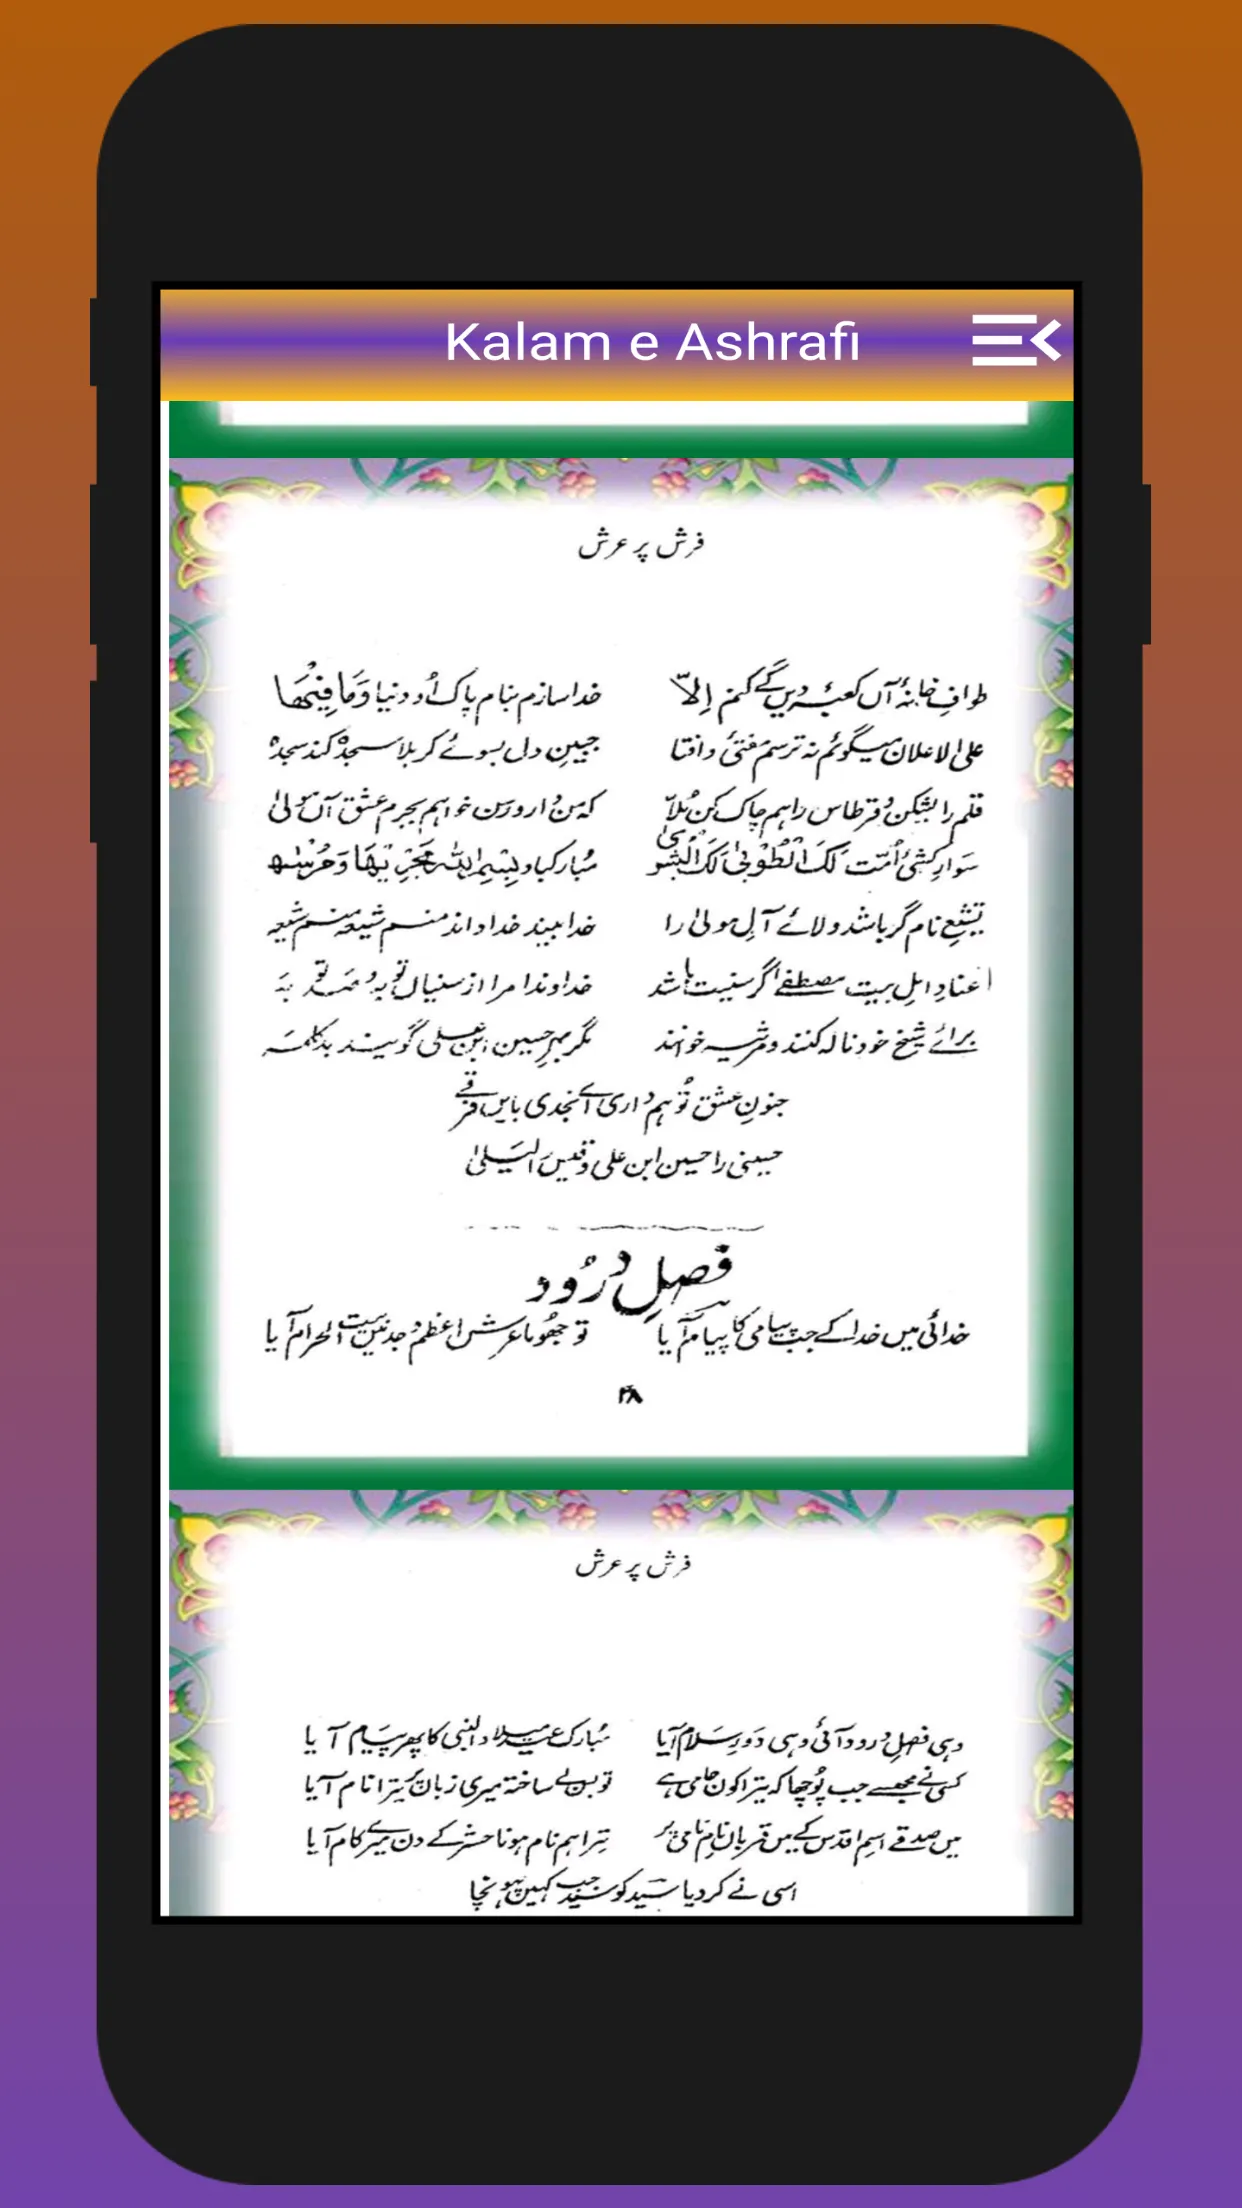 Kalam e Ashrafi
فرش پر عرش
طوافِ خانۂ آں کعبۂ دیں گے کنم اِلاّ خدا سازم بنام پاک اُو دنیا وَمَا فِیْهَا
علیٰ الاعلان میگوئم نہ ترسم مفتئ و افتا جبینِ دل بسوئے کربلا سجدہ کند سجدہ
قلم را بشکن و قرطاس را ہم چاک کن مُلاّ کہ من دار و رسن خواہم بجرم عشق آں مولیٰ
سوارِ کشتئ اُمت لَكَ الْطُوْبیٰ لَكَ الْبُشْریٰ مُبارکباد بِسْمِ اللہِ مَجْرٖیهَا وَمُرْسٰها
تشیعِ نام گر باشد ولائے آلِ مولیٰ را خدا بیند خدا داند منم شیعہ منم شیعہ
عنادِ اہلِ بیت مصطفےٰ اگر سنیت باشد خداوندا مرا از سنیاں تو بہ و صد تو بہ
برائے شیخ خود نالہ کنند و مرثیہ خوانند مگر بہرِ حسین ابن علی گویند بد کلمہ
جنونِ عشق تُو ہم داری اے نجدی بایں فرقے
حسینی را حسین ابن علی و قیس را لیلیٰ
فصلِ درُود
خدائی میں خدا کے جب پیامی کا پیام آیا تو جھُوما عرشِ اعظم وجد میں بیت الحرام آیا
۲۸
فرش پر عرش
وہی فصلِ درود آئی وہی دَورِ سَلام آیا مُبارک عید میلاد النبی کا پھر پیام آیا
کسی نے مجھسے جب پُوچھا کہ تیرا کون حامی ہے تو بس بے ساختہ میری زباں پر تیرا نام آیا
میں صدقے اسمِ اقدس کے میں قربان نامِ نامی پر تِرا ہم نام ہونا حشر کے دن میرے کام آیا
اسی نے کر دیا سیّد کو سیّد جب کہیں پہونچا